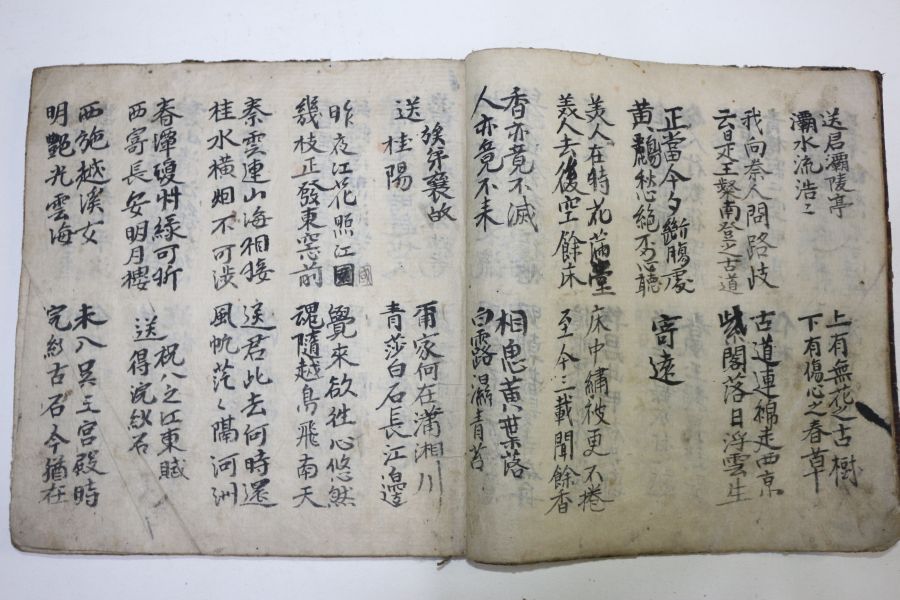 送君灞陵亭
灞水流浩々
上有無花之古樹
下有傷心之春草
我向秦人問路岐
云是王粲南登之古道
古道連綿走西京
紫閣落日浮雲生
正當今夕斷腸處
黃鸝愁絕不忍聽
寄遠
美人在時花滿堂
美人去後空餘床
床中繡被更不捲
至今三載聞餘香
香亦竟不滅
人亦竟不来
相思黃葉落
白露濕青苔
族弟襄故
送桂陽
爾家何在瀟湘川
青莎白石長江邊
昨夜江花照江國
國
幾枝正發東窓前
覺來欲往心悠然
魂隨越鳥飛南天
秦雲連山海相接
桂水橫烟不可涉
送君此去何時還
風帆茫々隔河洲
春潭瓊草綠可折
西寄長安明月樓
祝八之江東賦
送得浣紗石
西施越溪女
明艷光雲海
未入吳王宮殿時
浣紗古石今猶在